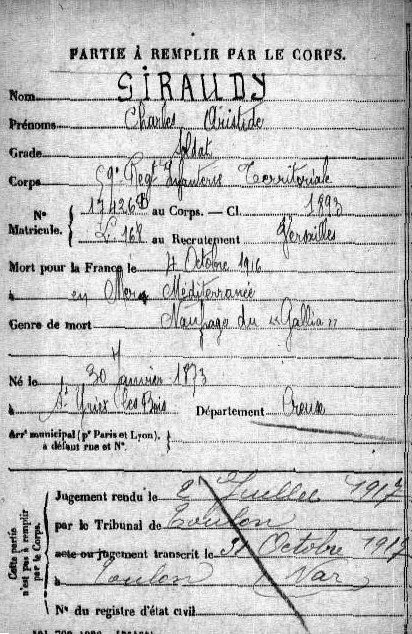 PARTIE À REMPLIR PAR LE CORPS.
Nom GIRAUDY
Prénoms Charles Aristide
Grade Soldat
Corps 59e Regt Infanterie Territoriale
N° Matricule. { 17426B au Corps. — Cl. 1893
L' 168 au Recrutement Versailles
Mort pour la France le 4 Octobre 1916
à en Mer Méditerranée
Genre de mort Naufrage du "Gallia"
Né le 30 Janvier 1873
à St Yriex les Bois Département Creuse
Arrt municipal (pr Paris et Lyon),
à défaut rue et N°.
Cette partie n'est pas à remplir par le Corps.
Jugement rendu le 2 Juillet 1917
par le Tribunal de Toulon
acte ou jugement transcrit le 31 Octobre 1917
à Toulon (Var)
N° du registre d'état civil